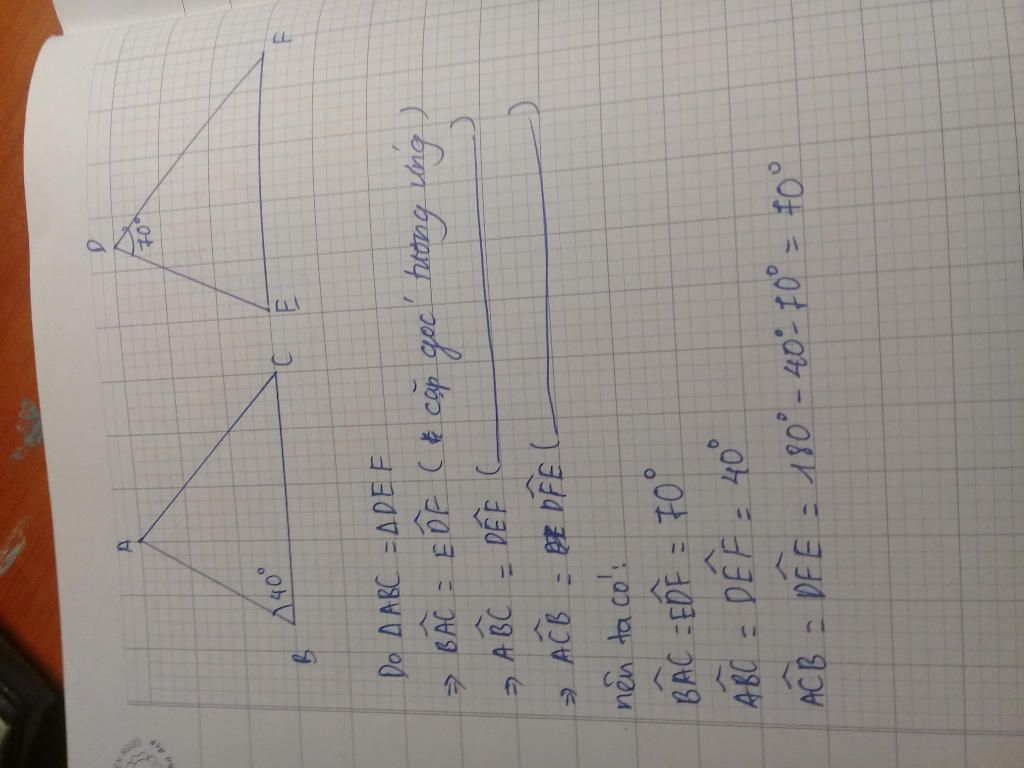 A
D
40°
70°
B
C
E
F
Do ΔABC = ΔDEF
⇒ BÂC = ED̂F ( cặp góc tương ứng )
⇒ AB̂C = DÊF ( )
⇒ AĈB = DF̂E ( )
nên ta có:
BÂC = ED̂F = 70°
AB̂C = DÊF = 40°
AĈB = DF̂E = 180° - 40° - 70° = 70°